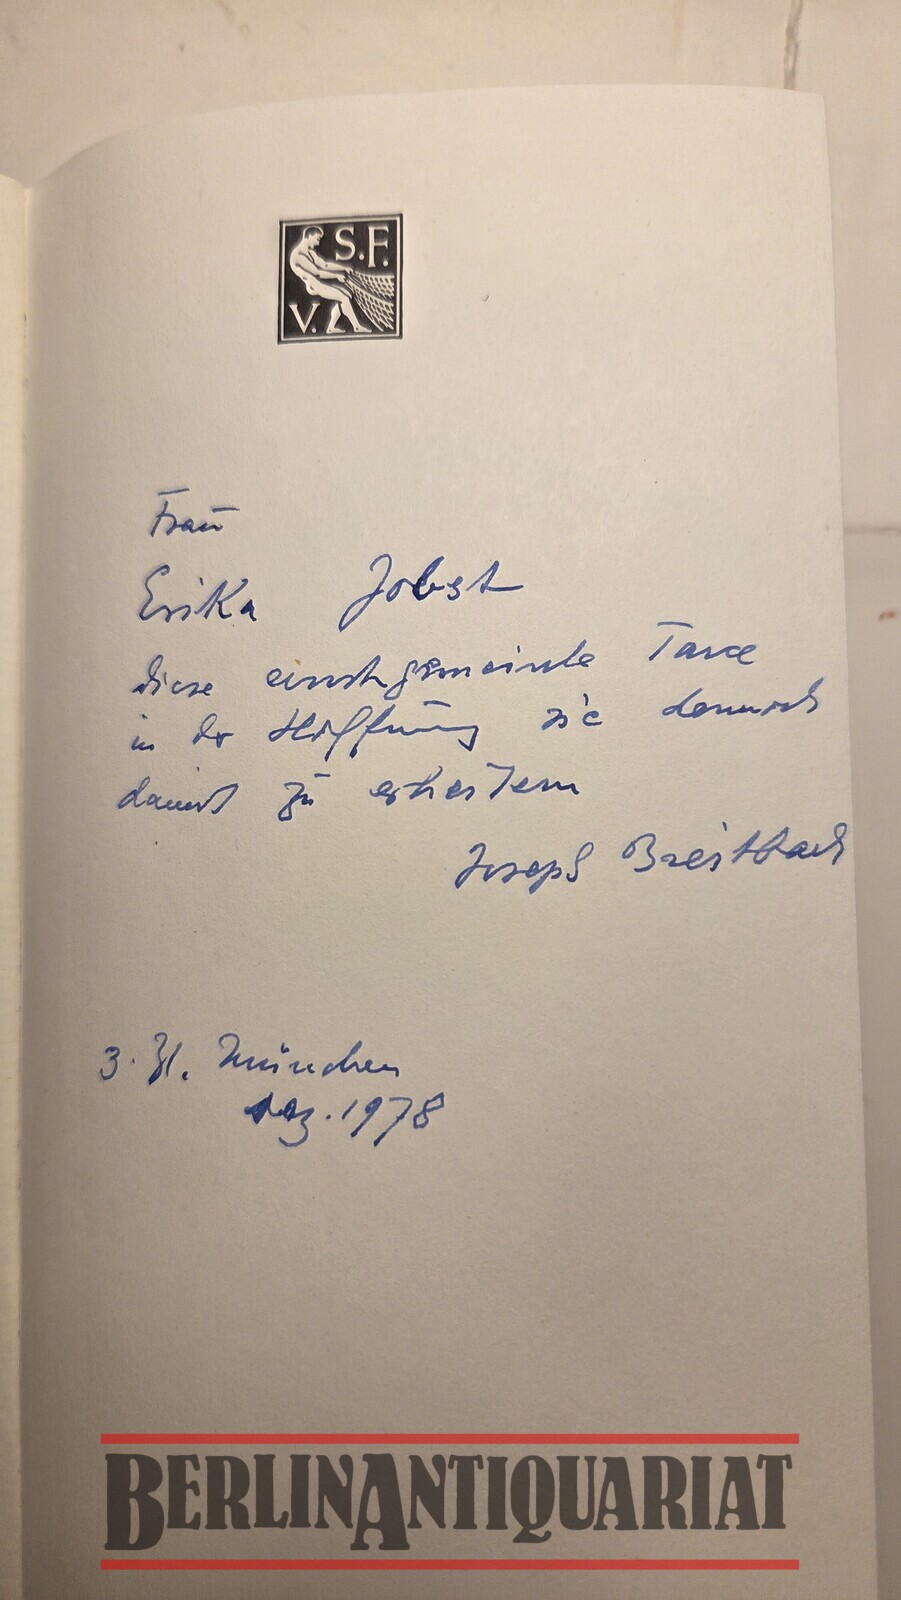 S.F.
V.
Frau
Erika Jobst
diese ernstgemeinte Farce
in der Hoffnung sie dennoch
damit zu erheitern
Joseph Breitbach
z. Zt. München
Dez. 1978
BERLINANTIQUARIAT